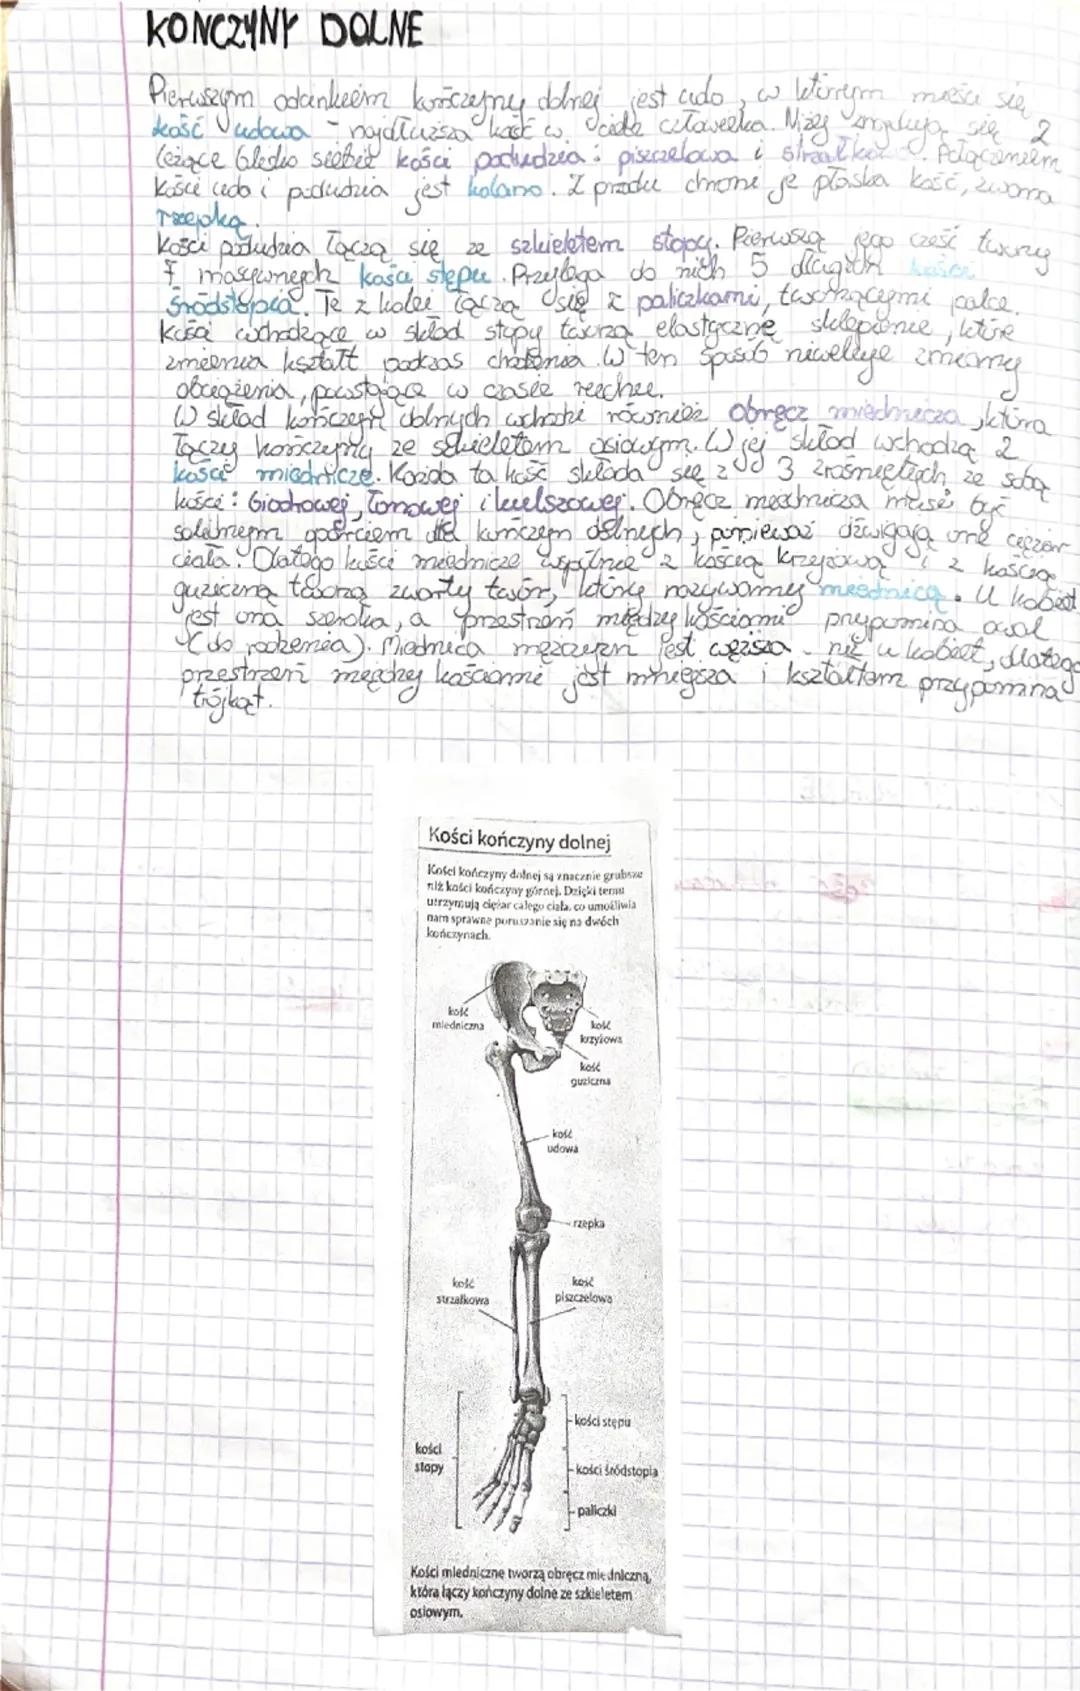 KOŃCZYNY DOLNE
Pierwszym odcinkiem kończyny dolnej jest udo, w którym mieści się
kość udowa - najdłuższa kość w ciele człowieka. Niżej znajdują się 2
leżące blisko siebie kości podudzia: piszczelowa i strzałkowa. Połączeniem
kości uda i podudzia jest kolano. Z przodu chroni je płaska kość, zwana
rzepką.
Kości podudzia łączą się ze szkieletem stopy. Pierwszą jego część tworzy
7 masywnych kości stępu. Przylega do nich 5 długich kości
śródstopia. Te z kolei łączą się z paliczkami, tworzącymi palce.
Kości wchodzące w skład stopy tworzą elastyczne sklepienie, które
zmienia kształt podczas chodzenia. W ten sposób niweluje zmiany
obciążenia, powstające w czasie ruchu.
W skład kończyn dolnych wchodzi również obręcz miednicza, która
łączy kończyny ze szkieletem osiowym. W jej skład wchodzą 2
kości miednicze. Każda ta kość składa się z 3 zrośniętych ze sobą
kości: biodrowej, łonowej i kulszowej. Obręcz miednicza musi być
solidnym oparciem dla kończyn dolnych, ponieważ dźwigają one ciężar
ciała. Dlatego kości miednicze wspólnie z kością krzyżową i z kością
guziczną tworzą zwarty twór, który nazywamy miednicą. U kobiet
jest ona szeroka, a przestrzeń między kościami przypomina owal
(do rodzenia). Miednica mężczyzn jest węższa niż u kobiet, dlatego
przestrzeń między kościami jest mniejsza i kształtem przypomina
trójkąt.
Kości kończyny dolnej
Kości kończyny dolnej są znacznie grubsze
niż kości kończyny górnej. Dzięki temu
utrzymują ciężar całego ciała, co umożliwia
nam sprawne poruszanie się na dwóch
kończynach.
kość
miedniczna
kość
krzyżowa
kość
guziczna
kość
udowa
rzepka
kość
strzałkowa
kość
piszczelowa
kości stępu
kości
stopy
kości śródstopia
paliczki
Kości miedniczne tworzą obręcz miedniczną,
która łączy kończyny dolne ze szkieletem
osiowym.